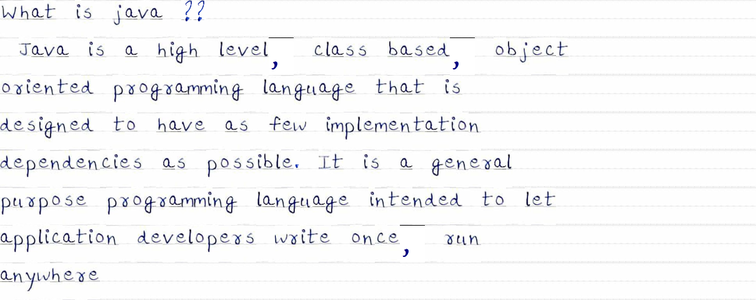 What is java ??
Java is a high level, class based, object
oriented programming language that is
designed to have as few implementation
dependencies as possible. It is a general
purpose programming language intended to let
application developers write once, run
anywhere